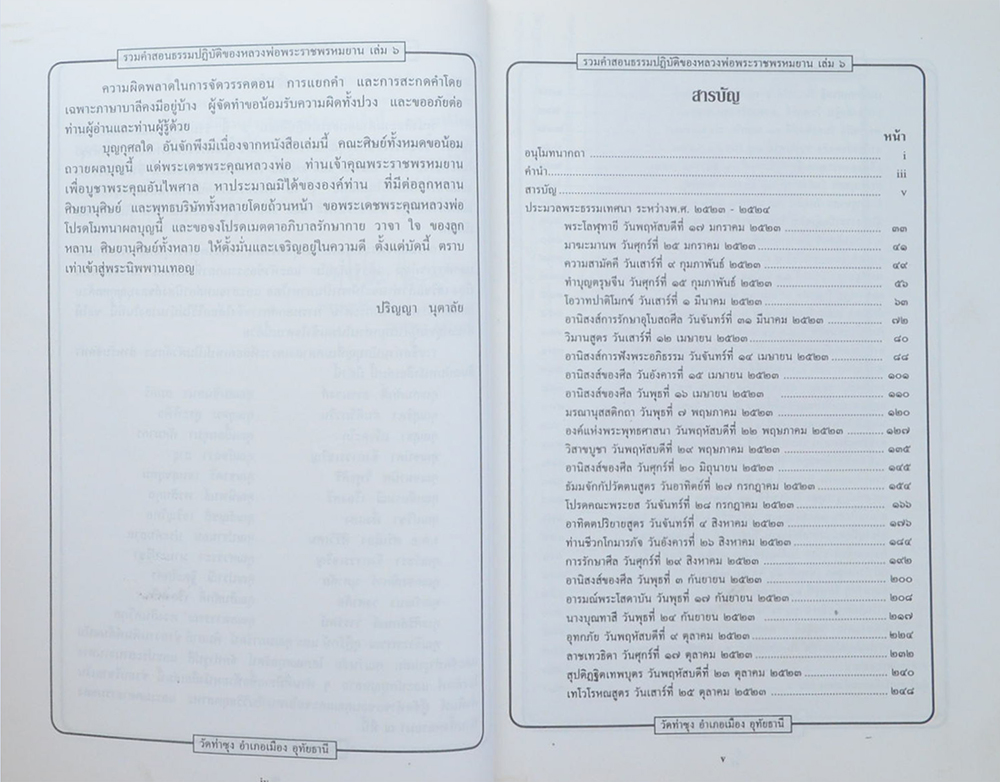 รวมคำสอนธรรมปฏิบัติของหลวงพ่อพระราชพรหมยาน เล่ม ๖
ความผิดพลาดในการจัดวรรคตอน การแยกคำ และการสะกดคำโดย
เฉพาะภาษาบาลีคงมีอยู่บ้าง ผู้จัดทำขอน้อมรับความผิดทั้งปวง และขออภัยต่อ
ท่านผู้อ่านและท่านผู้รู้ด้วย
บุญกุศลใด อันจักพึงมีเนื่องจากหนังสือเล่มนี้ คณะศิษย์ทั้งหมดขอน้อม
ถวายผลบุญนี้ แด่พระเดชพระคุณหลวงพ่อ ท่านเจ้าคุณพระราชพรหมยาน
เพื่อบูชาพระคุณอันไพศาล หาประมาณมิได้ขององค์ท่าน ที่มีต่อลูกหลาน
ศิษยานุศิษย์ และพุทธบริษัททั้งหลายโดยถ้วนหน้า ขอพระเดชพระคุณหลวงพ่อ
โปรดโมทนาผลบุญนี้ และขอจงโปรดเมตตาอภิบาลรักษากาย วาจา ใจ ของลูก
หลาน ศิษยานุศิษย์ทั้งหลาย ให้ตั้งมั่นและเจริญอยู่ในความดี ตั้งแต่บัดนี้ ตราบ
เท่าเข้าสู่พระนิพพานเทอญ
ปริญญา นุตาลัย
วัดท่าซุง อำเภอเมือง อุทัยธานี
รวมคำสอนธรรมปฏิบัติของหลวงพ่อพระราชพรหมยาน เล่ม ๖
สารบัญ
หน้า
อนุโมทนากถา i
คำนำ iii
สารบัญ v
ประมวลพระธรรมเทศนา ระหว่างพ.ศ. ๒๕๒๓ - ๒๕๒๔
พระโลฬุทายี วันพฤหัสบดีที่ ๑๗ มกราคม ๒๕๒๓ ๓๓
มาฆะมานพ วันศุกร์ที่ ๒๕ มกราคม ๒๕๒๓ ๔๑
ความสามัคคี วันเสาร์ที่ ๙ กุมภาพันธ์ ๒๕๒๓ ๔๙
ทำบุญตรุษจีน วันศุกร์ที่ ๑๕ กุมภาพันธ์ ๒๕๒๓ ๕๖
โอวาทปาติโมกข์ วันเสาร์ที่ ๑ มีนาคม ๒๕๒๓ ๖๓
อานิสงส์การรักษาอุโบสถศีล วันจันทร์ที่ ๓๑ มีนาคม ๒๕๒๓ ๗๒
วิมานสูตร วันเสาร์ที่ ๑๒ เมษายน ๒๕๒๓ ๘๐
อานิสงส์การฟังพระอภิธรรม วันจันทร์ที่ ๑๔ เมษายน ๒๕๒๓ ๘๘
อานิสงส์ของศีล วันอังคารที่ ๑๕ เมษายน ๒๕๒๓ ๑๐๑
อานิสงส์ของศีล วันพุธที่ ๑๖ เมษายน ๒๕๒๓ ๑๑๐
มรณานุสสติกถา วันพุธที่ ๗ พฤษภาคม ๒๕๒๓ ๑๒๐
องค์แห่งพระพุทธศาสนา วันพฤหัสบดีที่ ๒๒ พฤษภาคม ๒๕๒๓ ๑๒๗
วิสาขบูชา วันพฤหัสบดีที่ ๒๙ พฤษภาคม ๒๕๒๓ ๑๓๕
อานิสงส์ของศีล วันศุกร์ที่ ๒๐ มิถุนายน ๒๕๒๓ ๑๔๕
ธัมมจักกัปวัตตนสูตร วันอาทิตย์ที่ ๒๗ กรกฎาคม ๒๕๒๓ ๑๕๔
โปรดคณะพระยส วันจันทร์ที่ ๒๘ กรกฎาคม ๒๕๒๓ ๑๖๖
อาทิตตปริยายสูตร วันจันทร์ที่ ๔ สิงหาคม ๒๕๒๓ ๑๗๖
ท่านชีวกโกมารภัจ วันอังคารที่ ๒๖ สิงหาคม ๒๕๒๓ ๑๘๔
การรักษาศีล วันศุกร์ที่ ๒๙ สิงหาคม ๒๕๒๓ ๑๙๒
อานิสงส์ของศีล วันพุธที่ ๓ กันยายน ๒๕๒๓ ๒๐๐
อารมณ์พระโสดาบัน วันพุธที่ ๑๗ กันยายน ๒๕๒๓ ๒๐๘
นางบุณทาสี วันพุธที่ ๒๔ กันยายน ๒๕๒๓ ๒๑๗
อุทกภัย วันพฤหัสบดีที่ ๙ ตุลาคม ๒๕๒๓ ๒๒๔
ลาชเทวธิดา วันศุกร์ที่ ๑๗ ตุลาคม ๒๕๒๓ ๒๓๒
สุปติฏฐิตเทพบุตร วันพฤหัสบดีที่ ๒๓ ตุลาคม ๒๕๒๓ ๒๔๐
เทโวโรหณสูตร วันเสาร์ที่ ๒๕ ตุลาคม ๒๕๒๓ ๒๔๘
วัดท่าซุง อำเภอเมือง อุทัยธานี
v